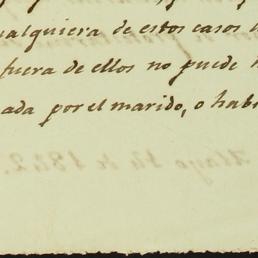 ualquiera de estos casos
fuera de ellos no puede
ada por el marido, o hab
Mayo 14 de 1842.